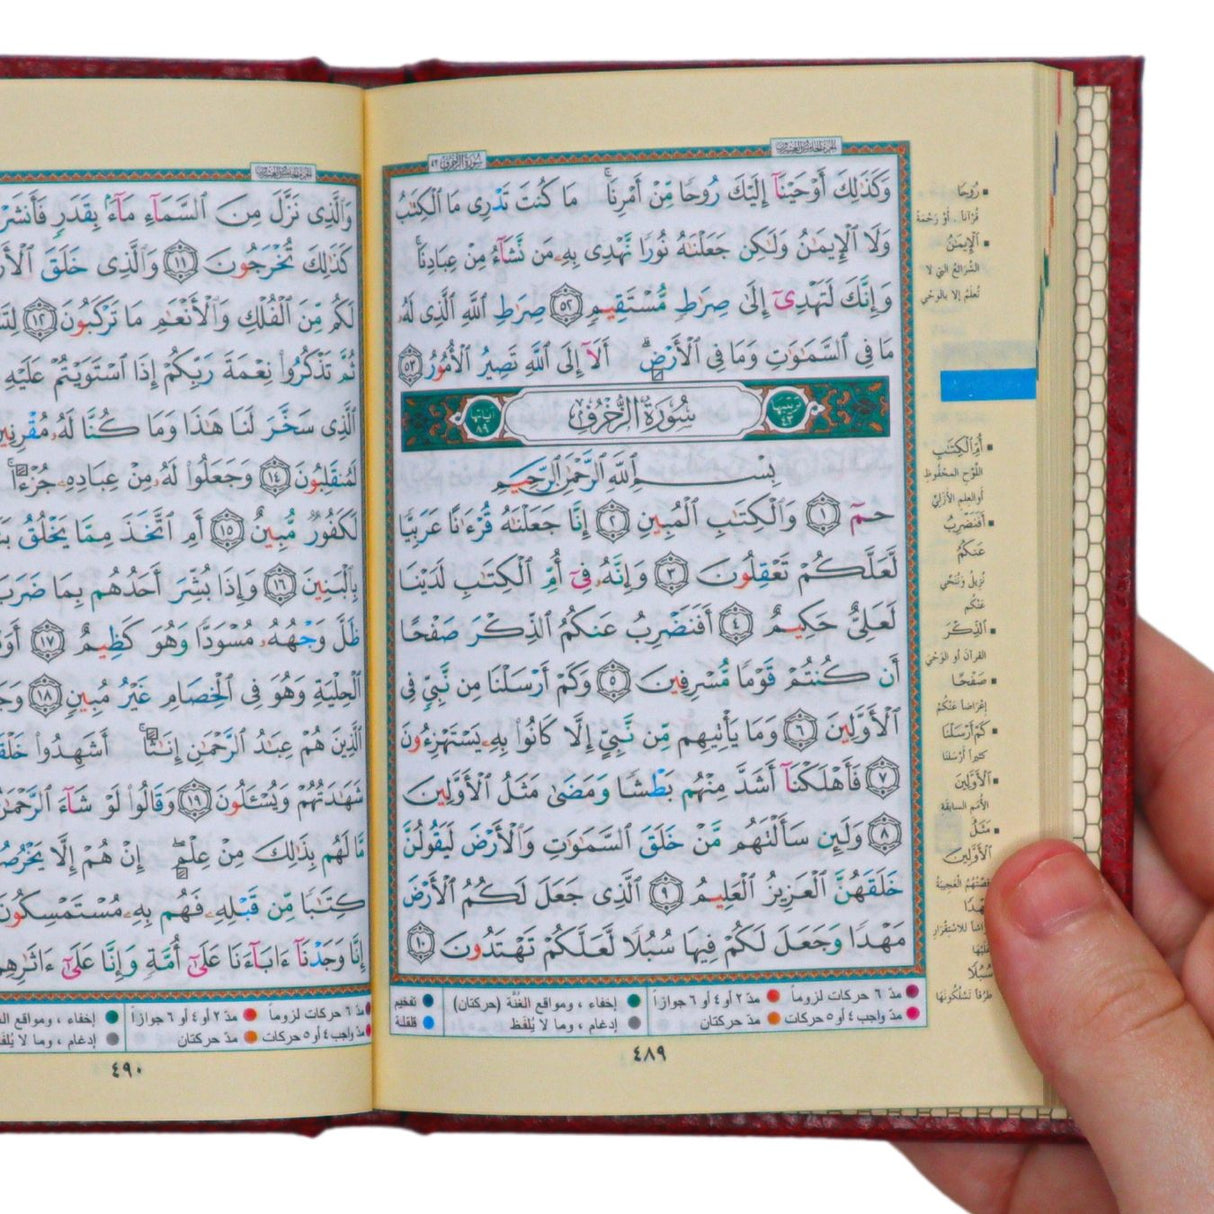 سورة الزخرف ٤٣
الجزء الخامس والعشرون
وَكَذَٰلِكَ أَوْحَيْنَآ إِلَيْكَ رُوحًا مِّنْ أَمْرِنَا ۚ مَا كُنتَ تَدْرِى مَا ٱلْكِتَـٰبُ
وَلَا ٱلْإِيمَـٰنُ وَلَـٰكِن جَعَلْنَـٰهُ نُورًا نَّهْدِى بِهِۦ مَن نَّشَآءُ مِنْ عِبَادِنَا ۚ
وَإِنَّكَ لَتَهْدِىٓ إِلَىٰ صِرَٰطٍ مُّسْتَقِيمٍ ٥٢ صِرَٰطِ ٱللَّهِ ٱلَّذِى لَهُۥ
مَا فِى ٱلسَّمَـٰوَٰتِ وَمَا فِى ٱلْأَرْضِ ۗ أَلَآ إِلَى ٱللَّهِ تَصِيرُ ٱلْأُمُورُ ٥٣
ترتيبها ٤٣ سُورَةُ الزُّخْرُفِ آياتها ٨٩
بِسْمِ ٱللَّهِ ٱلرَّحْمَـٰنِ ٱلرَّحِيمِ
حمٓ ١ وَٱلْكِتَـٰبِ ٱلْمُبِينِ ٢ إِنَّا جَعَلْنَـٰهُ قُرْءَٰنًا عَرَبِيًّا
لَّعَلَّكُمْ تَعْقِلُونَ ٣ وَإِنَّهُۥ فِىٓ أُمِّ ٱلْكِتَـٰبِ لَدَيْنَا
لَعَلِىٌّ حَكِيمٌ ٤ أَفَنَضْرِبُ عَنكُمُ ٱلذِّكْرَ صَفْحًا
أَن كُنتُمْ قَوْمًا مُّسْرِفِينَ ٥ وَكَمْ أَرْسَلْنَا مِن نَّبِىٍّ فِى
ٱلْأَوَّلِينَ ٦ وَمَا يَأْتِيهِم مِّن نَّبِىٍّ إِلَّا كَانُوا۟ بِهِۦ يَسْتَهْزِءُونَ
٧ فَأَهْلَكْنَآ أَشَدَّ مِنْهُم بَطْشًا وَمَضَىٰ مَثَلُ ٱلْأَوَّلِينَ
٨ وَلَئِن سَأَلْتَهُم مَّنْ خَلَقَ ٱلسَّمَـٰوَٰتِ وَٱلْأَرْضَ لَيَقُولُنَّ
خَلَقَهُنَّ ٱلْعَزِيزُ ٱلْعَلِيمُ ٩ ٱلَّذِى جَعَلَ لَكُمُ ٱلْأَرْضَ
مَهْدًا وَجَعَلَ لَكُمْ فِيهَا سُبُلًا لَّعَلَّكُمْ تَهْتَدُونَ ١٠
مدّ ٦ حركات لزوماً مدّ ٢ أو ٤ أو ٦ جوازاً إخفاء ، ومواقع الغُنَّة (حركتان) تفخيم
مدّ واجب ٤ أو ٥ حركات مدّ حركتان إدغام ، وما لا يُلفَظ قلقلة
٤٨٩
رُوحًا
قُرْآناً . أوْ رَحْمَةً
ٱلْإِيمَـٰنُ
الشّرَائِعُ التي لا
تُعلَمُ إلا بالوَحْي
أُمِّ ٱلْكِتَـٰبِ
اللَّوْحِ المَحْفُوظِ
أو العِلم الأزَليّ
أَفَنَضْرِبُ
عَنكُمُ
نُزِيلُ ونُنَحِّي
عَنْكُم
ٱلذِّكْرَ
القرآنَ أو الوَحْيَ
صَفْحًا
إعْراضاً عَنْكُمْ
كَمْ أَرْسَلْنَا
كثيراً أرْسَلنا
ٱلْأَوَّلِينَ
الأُمَمِ السابِقةِ
مَثَلُ
ٱلْأَوَّلِينَ
سُبُلًا
طُرُقاً تَسْلُكُونَها
الجزء الخامس والعشرون
وَٱلَّذِى نَزَّلَ مِنَ ٱلسَّمَآءِ مَآءًۢ بِقَدَرٍ فَأَنشَرْ
كَذَٰلِكَ تُخْرَجُونَ ١١ وَٱلَّذِى خَلَقَ ٱلْأَزْ
لَكُم مِّنَ ٱلْفُلْكِ وَٱلْأَنْعَـٰمِ مَا تَرْكَبُونَ ١٢ لِتَسْ
ثُمَّ تَذْكُرُوا۟ نِعْمَةَ رَبِّكُمْ إِذَا ٱسْتَوَيْتُمْ عَلَيْهِ
ٱلَّذِى سَخَّرَ لَنَا هَـٰذَا وَمَا كُنَّا لَهُۥ مُقْرِنِينَ
لَمُنقَلِبُونَ ١٤ وَجَعَلُوا۟ لَهُۥ مِنْ عِبَادِهِۦ جُزْءًا ۚ
لَكَفُورٌ مُّبِينٌ ١٥ أَمِ ٱتَّخَذَ مِمَّا يَخْلُقُ بَنَ
بِٱلْبَنِينَ ١٦ وَإِذَا بُشِّرَ أَحَدُهُم بِمَا ضَرَبَ
ظَلَّ وَجْهُهُۥ مُسْوَدًّا وَهُوَ كَظِيمٌ ١٧ أَوَ
ٱلْحِلْيَةِ وَهُوَ فِى ٱلْخِصَامِ غَيْرُ مُبِينٍ ١٨ وَجَ
ٱلَّذِينَ هُمْ عِبَـٰدُ ٱلرَّحْمَـٰنِ إِنَـٰثًا ۚ أَشَهِدُوا۟ خَلْقَ
شَهَـٰدَتُهُمْ وَيُسْـَٔلُونَ ١٩ وَقَالُوا۟ لَوْ شَآءَ ٱلرَّحْمَـٰنُ
مَّا لَهُم بِذَٰلِكَ مِنْ عِلْمٍ ۖ إِنْ هُمْ إِلَّا يَخْرُصُ
كِتَـٰبًا مِّن قَبْلِهِۦ فَهُم بِهِۦ مُسْتَمْسِكُونَ
إِنَّا وَجَدْنَآ ءَابَآءَنَا عَلَىٰٓ أُمَّةٍ وَإِنَّا عَلَىٰٓ ءَاثَـٰرِهِم
مدّ ٦ حركات لزوماً مدّ ٢ أو ٤ أو ٦ جوازاً إخفاء ، ومواقع الغ
مدّ واجب ٤ أو ٥ حركات مدّ حركتان إدغام ، وما لا يُلفَظ
٤٩٠